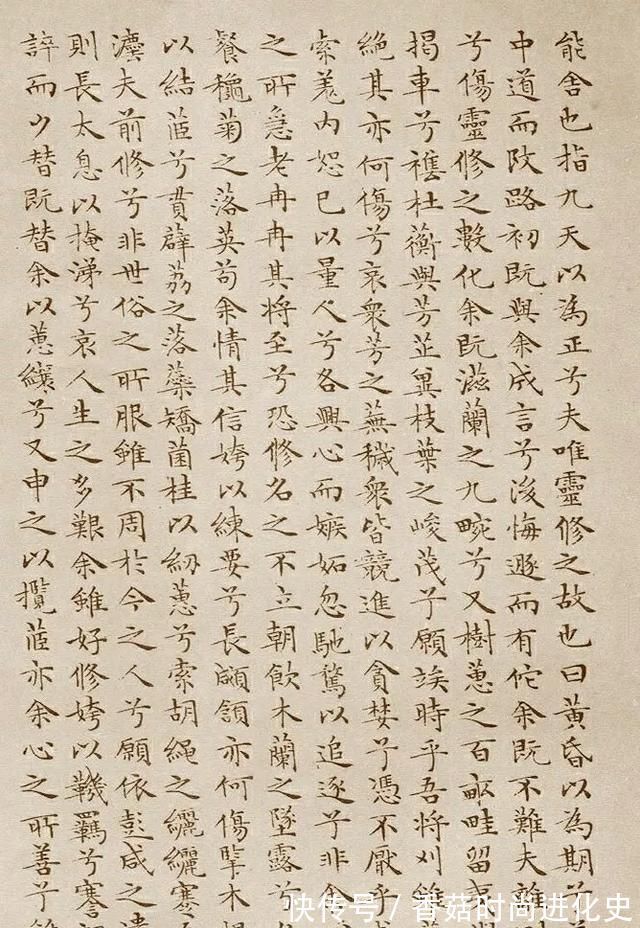 能舍也指九天以為正兮夫唯靈修之故也曰黃昏以為期兮
中道而改路初既與余成言兮後悔遯而有佗余既不難夫離
兮傷靈修之數化余既滋蘭之九畹兮又樹蕙之百畝畦留夷
揭車兮襍杜蘅與芳芷兾枝葉之峻茂兮願竢時乎吾將刈雖
絕其亦何傷兮哀衆芳之蕪穢衆皆競進以貪婪兮憑不厭乎
索羌内恕己以量人兮各興心而嫉妬忽馳騖以追逐兮非余
之所急老冉冉其將至兮恐修名之不立朝飲木蘭之墜露兮
餐穐菊之落英苟余情其信姱以練要兮長顑頷亦何傷擥木根
以結茝兮貫薜荔之落蘂矯菌桂以紉蕙兮索胡繩之纚纚謇
灋夫前修兮非世俗之所服雖不周於今之人兮願依彭咸之遺
則長太息以掩涕兮哀人生之多艱余雖好修姱以鞿羈兮謇朝
誶而夕替既替余以蕙纕兮又申之以攬茝亦余心之所善兮雖
快传号/香菇时尚进化史